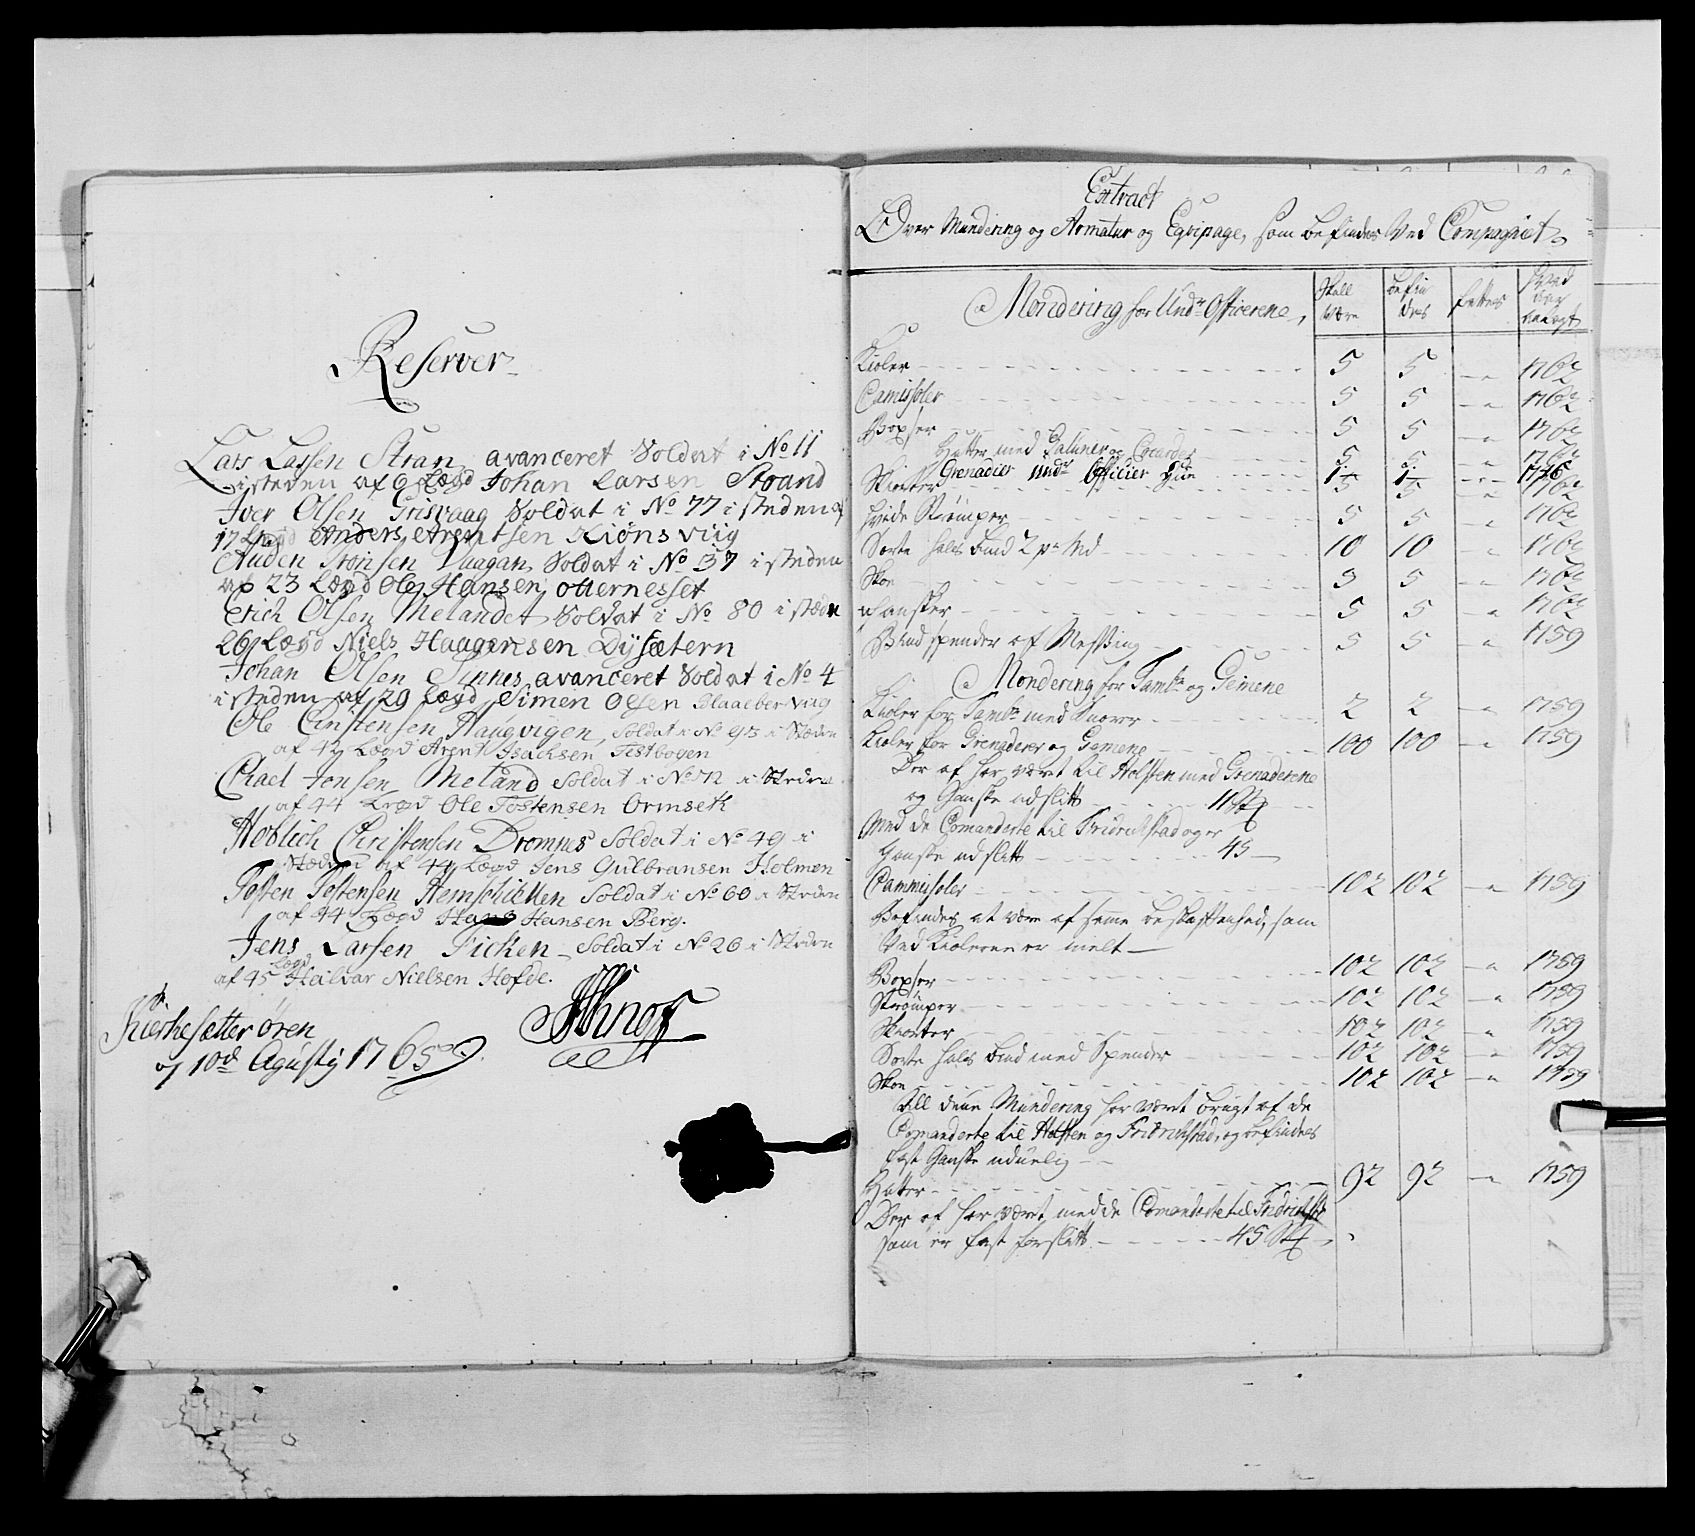 Reserver
Lars Larsen Stran avanceret Soldat i No 11
i steden af 6 Lægd Johan Larsen Strand
Iver Olsen Grisvaag Soldat i No 77 i steden af
17 Lægd Anders Arentsen Kiönsviig
Auden Jonsen Vaagan Soldat i No 37 i steden
af 23 Lægd Ole Hansen otternesset
Erich Olsen Melandet Soldat i No 80 i stæden
26 Lægd Niels Haagensen Dysætern
Johan Olsen avanceret Soldat i No 4
i steden af 29 Lægd Simen Olsen Blaalberviig
Ole Christensen Haugvigen Soldat i No i Stæden
af 42 Lægd Arent Isachsen Tistbogen
Chael Jonsen Meland Soldat i No 72 i Steden
af 44 Lægd Ole Tostensen Ormsetk
Christensen Dromnes Soldat i No 49 i
Stæden af 44 Lægd Jens Gulbransen Holmen
Tosten Tostensen Hemschiellen Soldat i No 60 i Steden
af 44 Lægd Hans Hansen Berg.
Jens Larsen Ficken Soldat i No 26 i Steden
af 45 Lægd Halvar Nielsen Hofde.
Kierkesætter ören
d 10de Agusty 1765
Extract
Over Mundering og Armatur og Eqvipage, som befindes Ved Compagniet
Mondering for Undr Officerene, Skall være befindes fattes hvad Aar bekaagt
Kioler 5 5 - " 1762
Camisoler 5 5 - " 1762
Boxser 5 5 - " 1762
Hatter med Galuner og Cocarder 5 5 - " 1762
Grenadier undr Officier Hue 1 1 - " -
Skiorter 5 5 - " 1762
hvide Strömper 5 5 - " 1762
Sorte hals bind 2 pr Md 10 10 " 1762
Skoe 5 5 - " 1762
Hansker 5 5 - " 1762
Bindspender af Messing 5 5 - " 1759
Mondering for Tambr og Gemene
Kioler for Tambr med Snorer 2 2 - " 1759
Kioler for Grenaderer og Gemene 100 100 - " 1759
Der af har været til Holsten med Grenaderene
og Ganske udslitt 11 St
Med de Comanderte til Fridrichstad og er
Ganske udslitt 45
Cammisoler 102 102 - " 1759
Befindes at være af samme beskaffenhed, som
Ved Kiolerne er melt
Boxser 102 102 - " 1759
Strömper 102 102 - " 1759
Skiorter 102 102 - " 1759
Sorte hals bind med Spender 102 102 - " 1759
Skoe 102 102 - " 1759
All denne Mundering har været brugt af de
Comanderte til Holsten og Fridrichstad, og befindes
fast Ganske uduelig
Hatter 92 92 - " 1759
Der af har været med de Comanderte til Fridrichst
som er fast forslitt 45 St